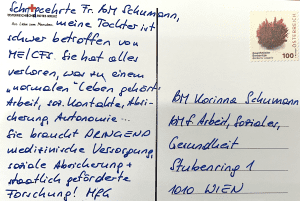 Sehr geehrte Fr. BM Schumann,
meine Tochter ist
schwer betroffen von
ME/CFS. Sie hat alles
verloren, was zu einem
„normalen" Leben gehört:
Arbeit, soz. Kontakte, Absi-
cherung, Autonomie...
Sie braucht DRINGEND
medizinische Versorgung,
soziale Absicherung +
staatlich geförderte
Forschung! MfG
ÖSTERREICH
100
BM Korinna Schumann
BM f. Arbeit, Soziales,
Gesundheit
Stubenring 1
1010 WIEN